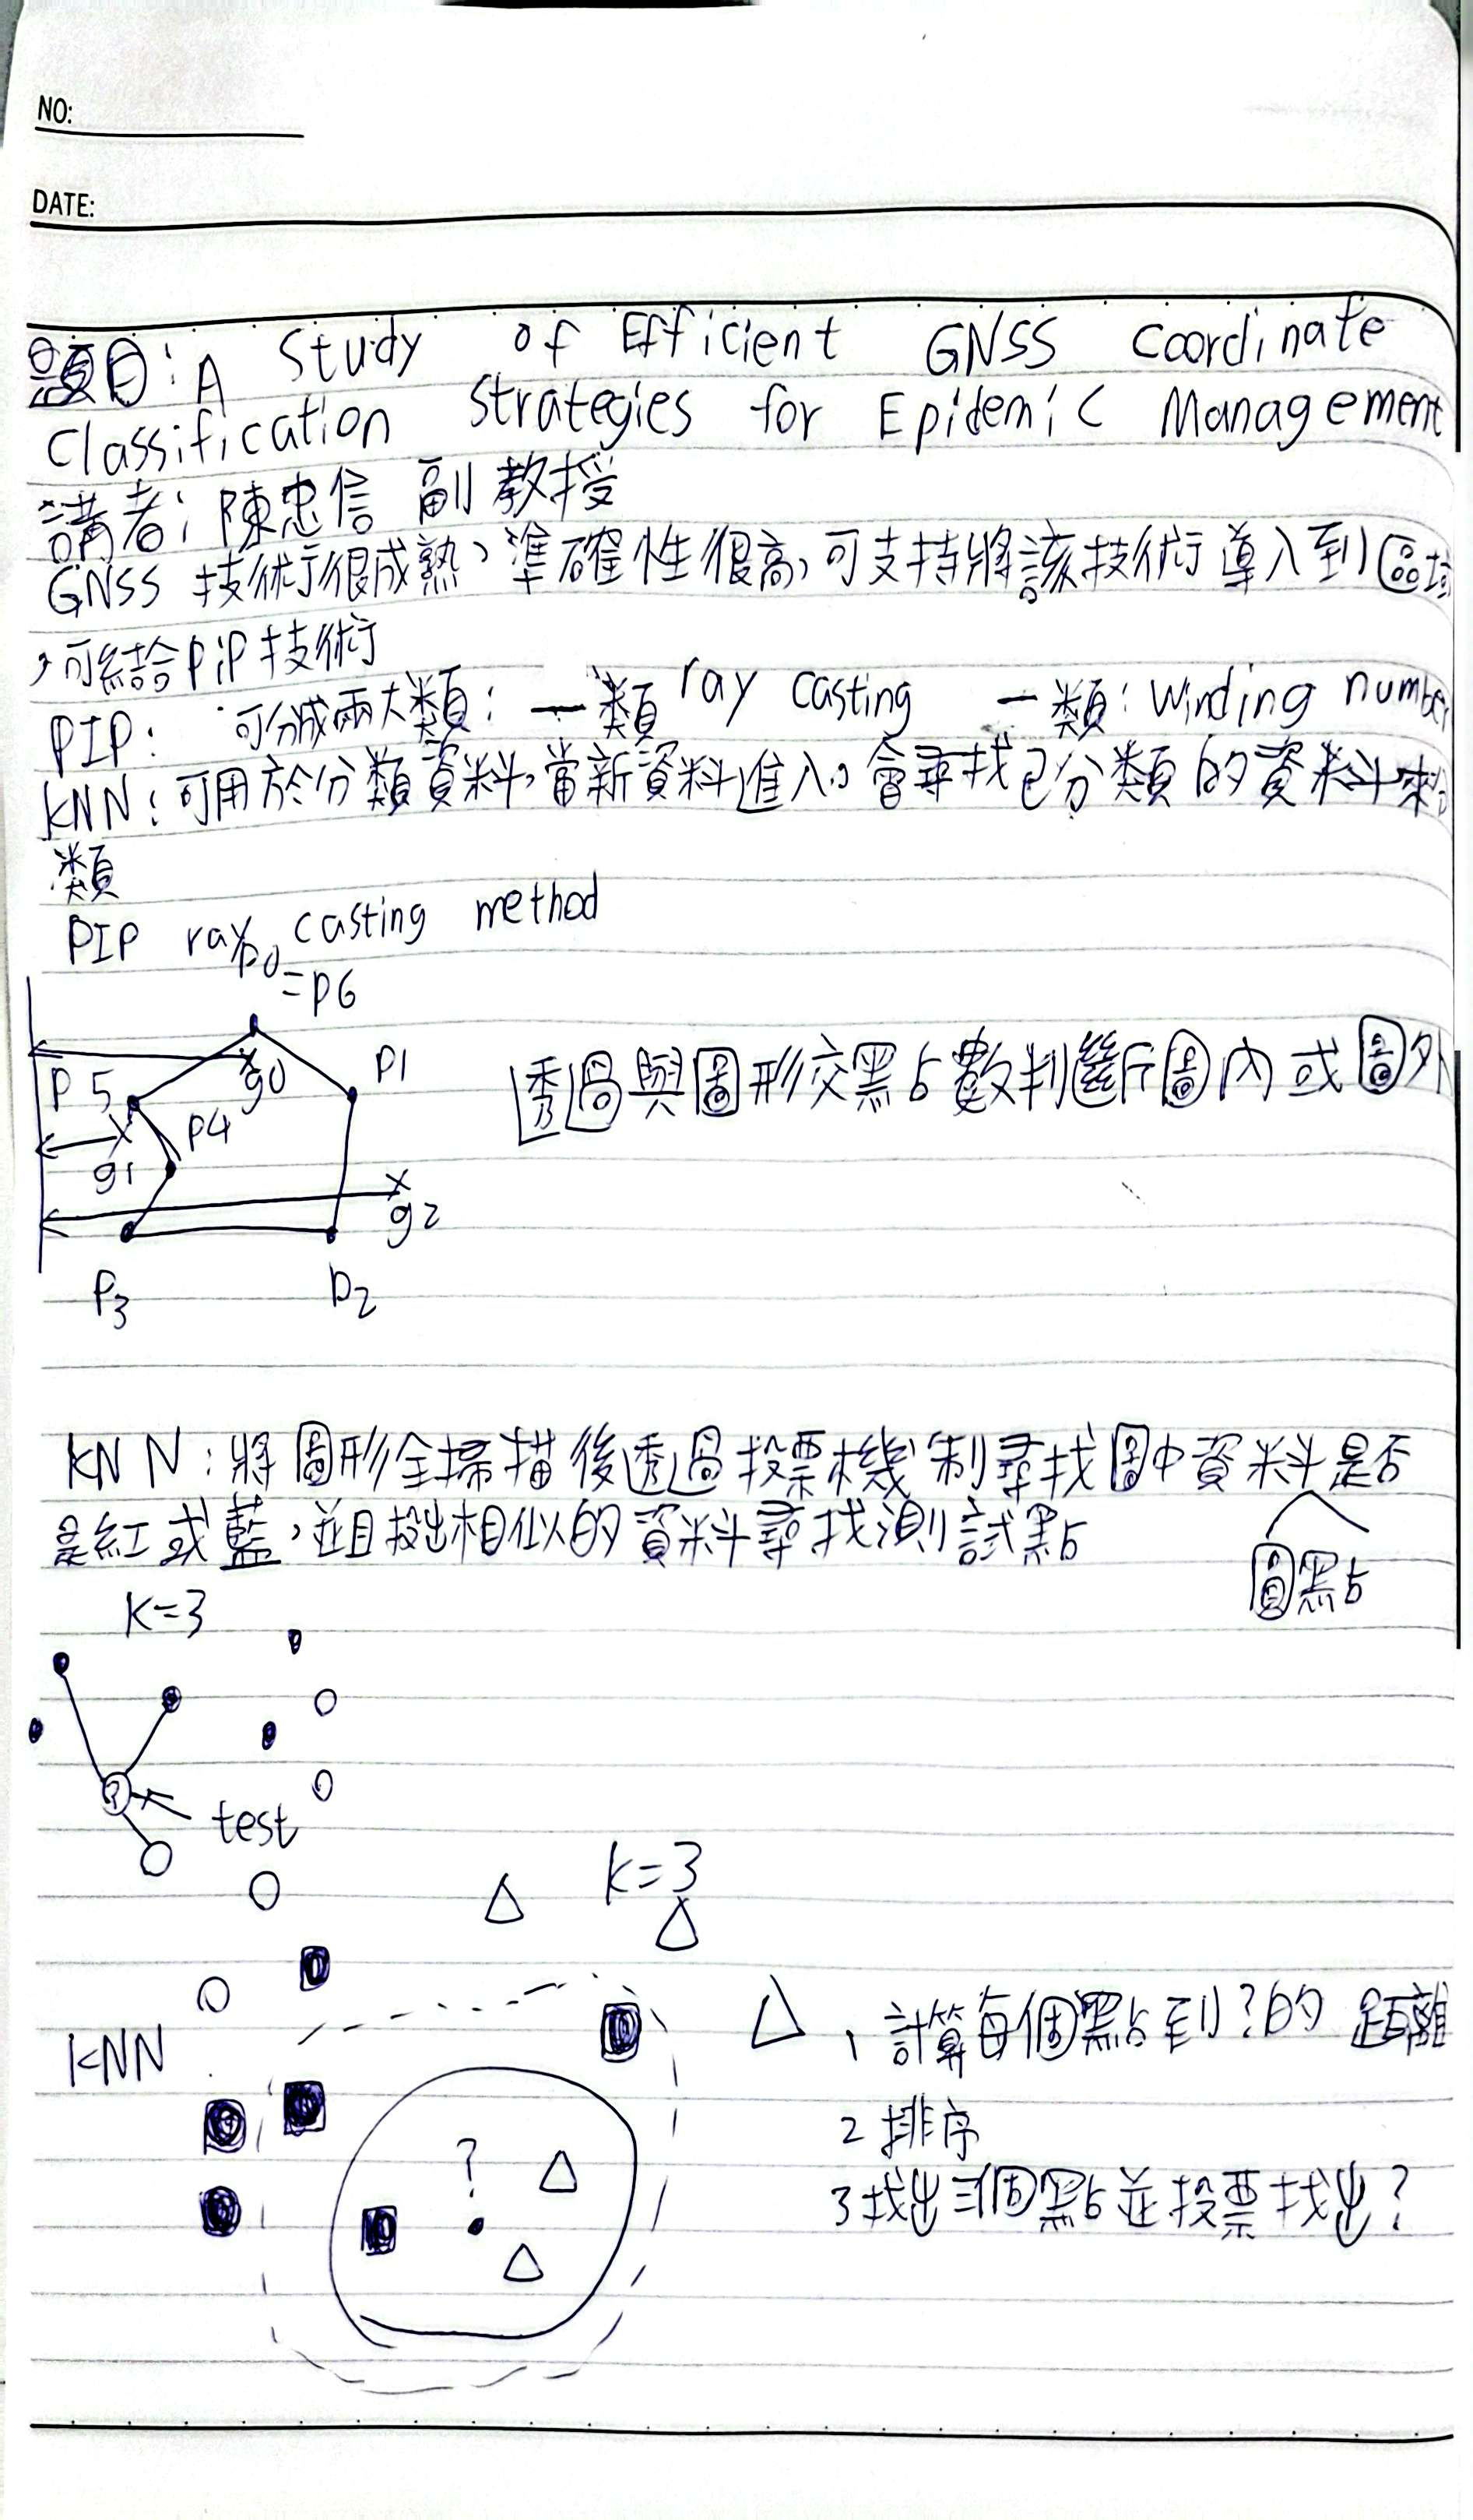 NO:
DATE:
題目:A Study of Efficient GNSS Coordinate
Classification Strategies for Epidemic Management
講者:陳忠信 副教授
GNSS 技術很成熟,準確性很高,可支持將該技術導入到區域
,可結合PiP技術
PIP: 可分成兩大類: 一類 ray casting 一類: Winding number
KNN:可用於分類資料,當新資料進入。會尋找已分類的資料來分
類
PIP ray casting method
p0
=p6
p5
g0
p1
p4
g1
g2
P3
p2
透過與圖形交點數判斷圖內或圖外
KNN:將圖形全掃描後透過投票機制尋找圖中資料是否
是紅或藍,並且投出相似的資料尋找測試點
圓點
K=3
?
test
K=3
KNN
?
1 計算每個點到?的距離
2 排序
3 找出三個點並投票找出?